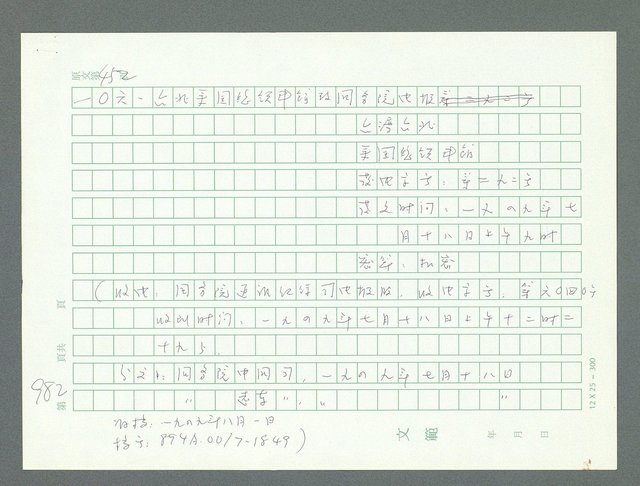 原文第452
一〇六、台北美国总领事馆致国务院电报第二九二号
台湾台北
美国总领事馆
发电字号：第二九二号
发文时间：一九四九年七
月十八日上午九时
密等：机密
（收电：国务院通讯纪录司电报股，收电字号：第六〇四〇号
收到时间：一九四九年七月十八日上午十二时二
十九分。
分文：国务院中国司，一九四九年七月十八日
〃 〃，〃 〃
归档：一九四九年八月一日
档号：894A.00/7-1849）
第 982
頁共
頁
文範
年 月 日
12 X 25 = 300